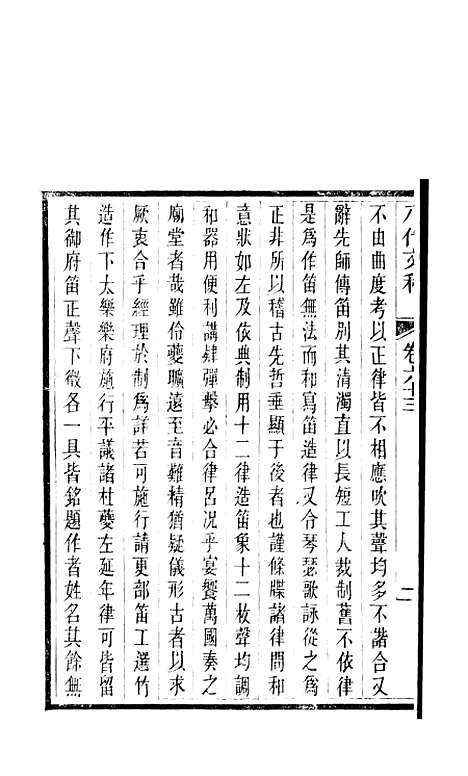 八代文粹 卷六十三 二
不由曲度考以正律皆不相應吹其聲均多不諧合又
辭先師傳笛別其清濁直以長短工人裁制舊不依律
是爲作笛無法而和寫笛造律又令琴瑟歌詠從之爲
正非所以稽古先哲垂顯于後者也謹條牒諸律問和
意狀如左及依典制用十二律造笛象十二枚聲均調
和器用便利講肄彈擊必合律呂况乎宴饗萬國奏之
廟堂者哉雖伶夔曠遠至音難精猶疑儀形古者以求
厥衷合乎經理於制爲詳若可施行請更部笛工選竹
造作下太樂樂府施行平議諸杜夔左延年律可皆留
其御府笛正聲下徵各一具皆銘題作者姓名其餘無